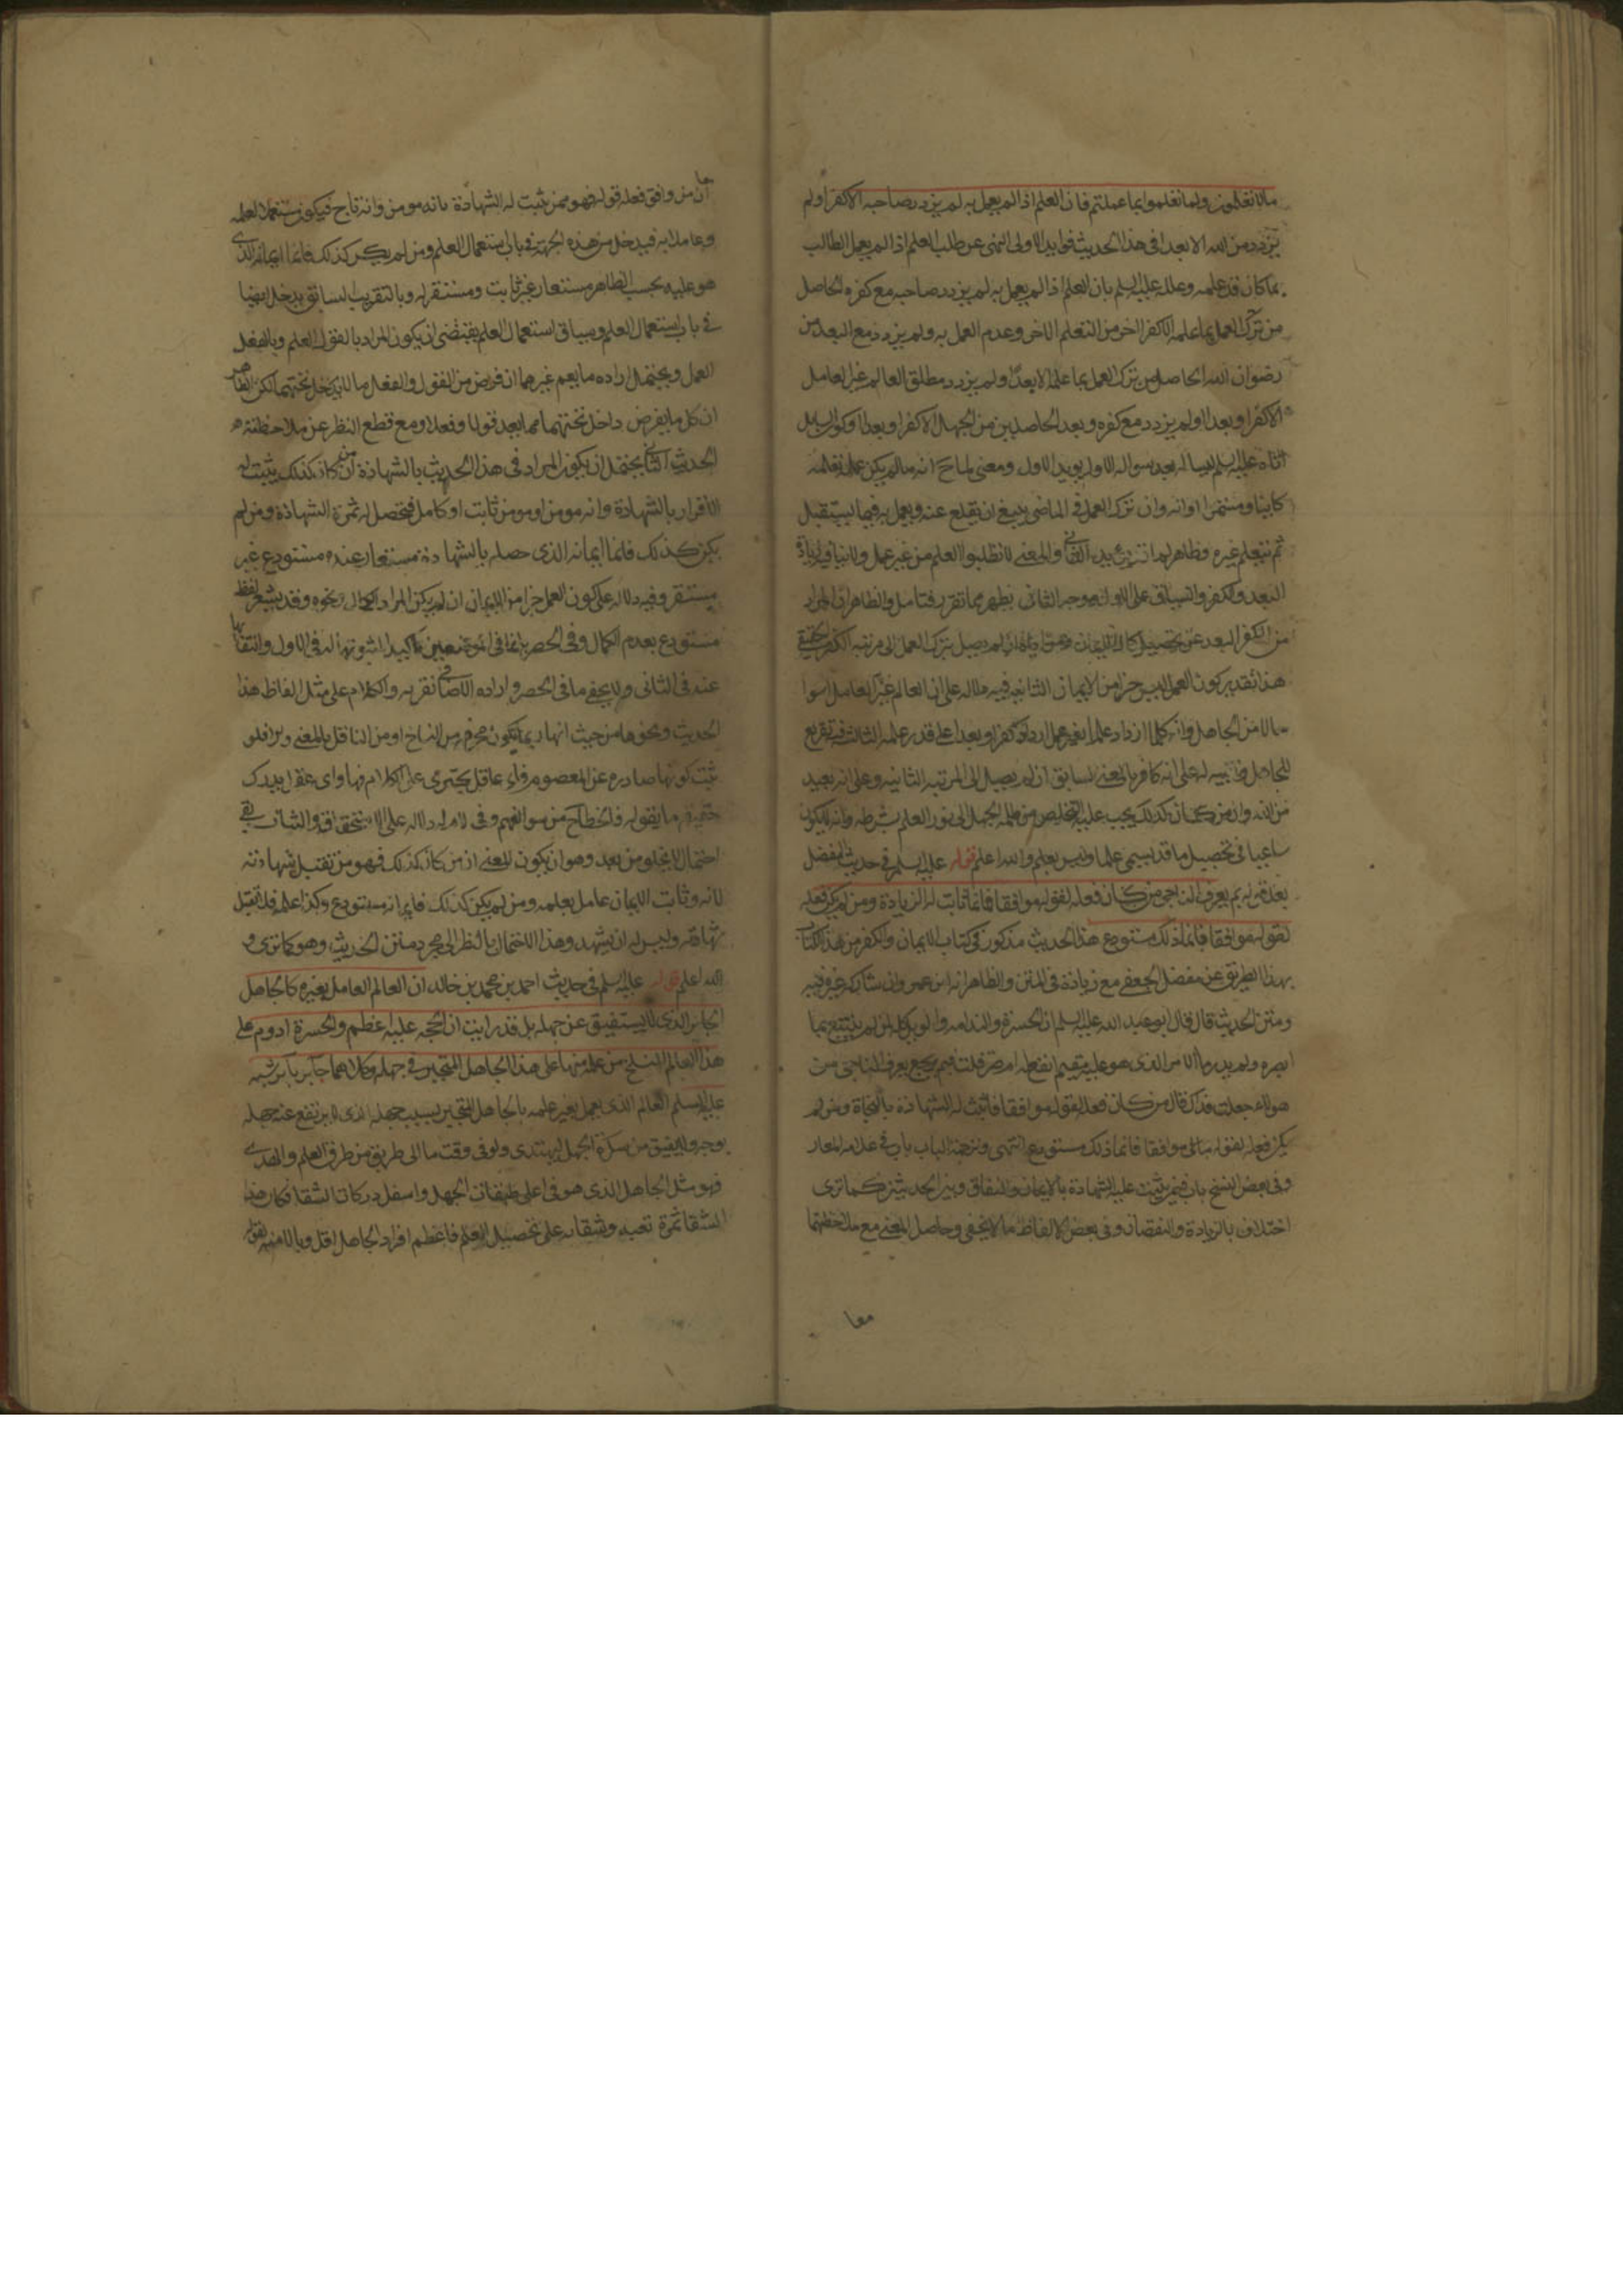 مالا تعلمون ولما تعلموا بما علمتم فان العلم اذا لم يعمل به لم يزدد صاحبه الا كفرا ولم
يزدد من الله الا بعدا في هذا الحديث فوايد الاولى النهى عن طلب العلم اذا لم يعمل الطالب
بما كان قد علمه وعلله عليه السلم بان العلم اذا لم يعمل به لم يزدد صاحبه مع كفره الحاصل
من ترك العمل بما علمه الا كفرا اخر من التعلم الاخر وعدم العمل به ولم يزدد مع البعد من
رضوان الله الحاصل من ترك العمل بما علم الا بعدا ولم يزدد مطلق العالم غير العامل
الا كفرا وبعدا او لم يزدد مع كفره وبعده الحاصلين من الجهل الا كفرا وبعدا وكون السايل
اتاه عليه السلم يساله بعد سواله الاول يويد الاول ومعنى لما ح انه مالم يكن عمل تعلمه
كاينا ومستمرا او انه وان ترك العمل في الماضى ينبغى ان يقلع عنه ويعمل به فيما يستقبل
ثم يتعلم غيره وظاهر لما يويد الثانى والمعنى لا تطلبوا العلم من غير عمل
البعد والكفر والسياق على الاول ووجه الثانى يظهر مما تقرر فتامل والظاهر ان المراد
من الكفر البعد عن تحصيل كمال الايمان ان لم يصل بترك العمل الى مرتبة الكفر الحقيقي
هذا بتقدير كون العمل ليس جزا من الايمان الثانية فيه دلالة على ان العالم غير العامل اسوا
حالا من الجاهل وانه كلما ازداد علما بغير عمل ازداد كفرا وبعدا على قدر علمه الثالثة فيه تقريع
للجاهل وتنبيه له على انه كافر بالمعنى السابق ان لم يصل الى المرتبة الثانية وعلى انه بعيد
من الله وان من كان كذلك يجب عليه التخليص من ظلمة الجهل الى نور العلم بشرطه وانه لا يكون
ساعيا في تحصيل ما قد يسمى علما وليس بعلم والله اعلم قوله عليه السلم في حديث المفضل
بعد قوله بم يعرف الناجى من كان فعله لقوله موافقا فانما ثابت له الزيادة ومن لم يكن فعله
لقوله موافقا فانما ذلك مستودع هذا الحديث مذكور في كتاب الايمان والكفر من هذا الكتاب
بهذا الطريق عن مفضل الجعفى مع زيادة في المتن والظاهر انه ابن عمر وان شاركه غيره فيه
ومتن الحديث قال قال ابو عبد الله عليه السلم ان الحسرة والندامة والويل كله لمن لم ينتفع بما
ابصره ولم يدر ما الامر الذى هو عليه مقيم انفع له ام ضر قلت فبم يعرف الناجى من
هولاء جعلت فداك قال من كان فعله لقوله موافقا فاثبت له الشهادة بالنجاة ومن لم
يكن فعله لقوله موافقا فانما ذلك مستودع انتهى وترجمة الباب باب في علامة المعار
وفي بعض النسخ باب فيمن يثبت عليه الشهادة بالايمان والنفاق وبين الحديثين كما ترى
اختلاف بالزيادة والنقصان وفي بعض الالفاظ ما لا يخفى وحاصل المعنى مع ملاحظتهما
معا
ان من وافق فعله قوله فهو ممن يثبت له الشهادة بانه مومن وانه ناج فيكون مستعملا لعلمه
وعاملا به فيدخل من هذه الجهة في باب استعمال العلم ومن لم يكن كذلك فانما ايمانه الذى
هو عليه بحسب الظاهر مستعار غير ثابت ومستقر له وبالتقريب السابق يدخل ايضا
في باب استعمال العلم وسياق استعمال العلم يقتضى ان يكون المراد بالقول العلم وبالفعل
العمل ويحتمل ارادة ما يعم غيرهما ان فرض من القول والفعل ما لا يدخل تحتهما لكن الظاهر
ان كل ما يفرض داخل تحتهما مما يعد قولا وفعلا ومع قطع النظر عن ملاحظة
الحديث الثانى يحتمل ان يكون المراد في هذا الحديث بالشهادة ان من كان كذلك يثبت له
الاقرار بالشهادة وانه مومن او مومن ثابت او كامل فتحصل له ثمرة الشهادة ومن لم
يكن كذلك فانما ايمانه الذى حصله بالشهادة مستعار عنده مستودع غير
مستقر وفيه دلالة على كون العمل جزا من الايمان ان لم يكن المراد الكمال ونحوه وقد يشعر لفظ
مستودع بعدم الكمال وفي الحصر بانما في الموضعين تاكيد لثبوتها له في الاول وانتفائها
عنه في الثانى ولا يخفى ما في الحصر وارادة الاضافى تقربه والكلام على مثل الفاظ هذا
الحديث ونحوها من حيث انها ربما يكون محرفة من النساخ او من الناقل بالمعنى ويرا فلو
ثبت كونها صادرة عن المعصوم فاى عاقل يجترى على الكلام فيها واى عقل يدرك
حقيقة ما يقوله فالخطا ح من سوء الفهم وفي لام له دلالة على الاستحقاق والثبات بقى
احتمال لا يخلو من بعد وهو ان يكون المعنى ان من كان كذلك فهو من تقبل شهادته
لانه ثابت الايمان عامل بعلمه ومن لم يكن كذلك فايمانه مستودع وكذا علمه فلا تقبل
شهادته وليس له ان يشهد وهذا الاحتمال بالنظر الى مجرد متن الحديث وهو كما ترى و
الله اعلم قوله عليه السلم في حديث احمد بن محمد بن خالد ان العالم العامل بغيره كالجاهل
الحاير الذى لا يستفيق عن جهله بل قد رايت ان الحجه عليه اعظم والحسرة ادوم على
هذا العالم المنسلخ من علمه منها على هذا الجاهل المتحير في جهله وكلاهما حاير باير شبه
عليه السلم العالم الذى يعمل بغير علمه بالجاهل المتحير بسبب جهله الذى لا يرتفع عنه جهله
بوجه ولا يفيق من سكرة الجهل ليهتدى ولو في وقت ما الى طريق من طرق العلم والهدى
فهو مثل الجاهل الذى هو في اعلى طبقات الجهل واسفل دركات الشقا فكان هذا
الشقا ثمرة تعبه وشقائه على تحصيل العلم فاعظم افراد الجاهل اقل وبالا منه